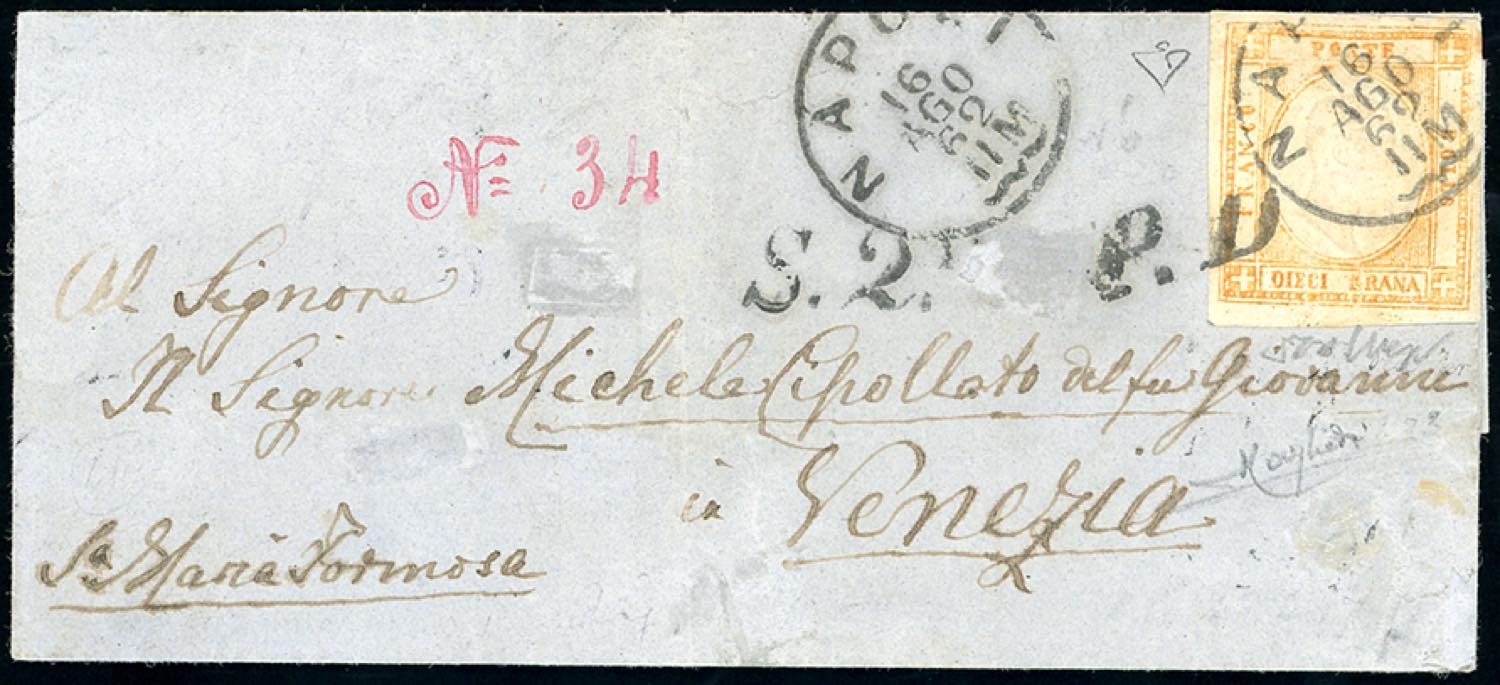 NAPOLI
16
AGO
62
11M
POSTE
FRANCO
BOLLO
DIECI GRANA
NAP
16
AGO
62
11M
Nº 34
S. 2. P. D
Al Signore
Il Signore Michele Cipollato del fu Giovanni
in Venezia
Sa Maria Formosa